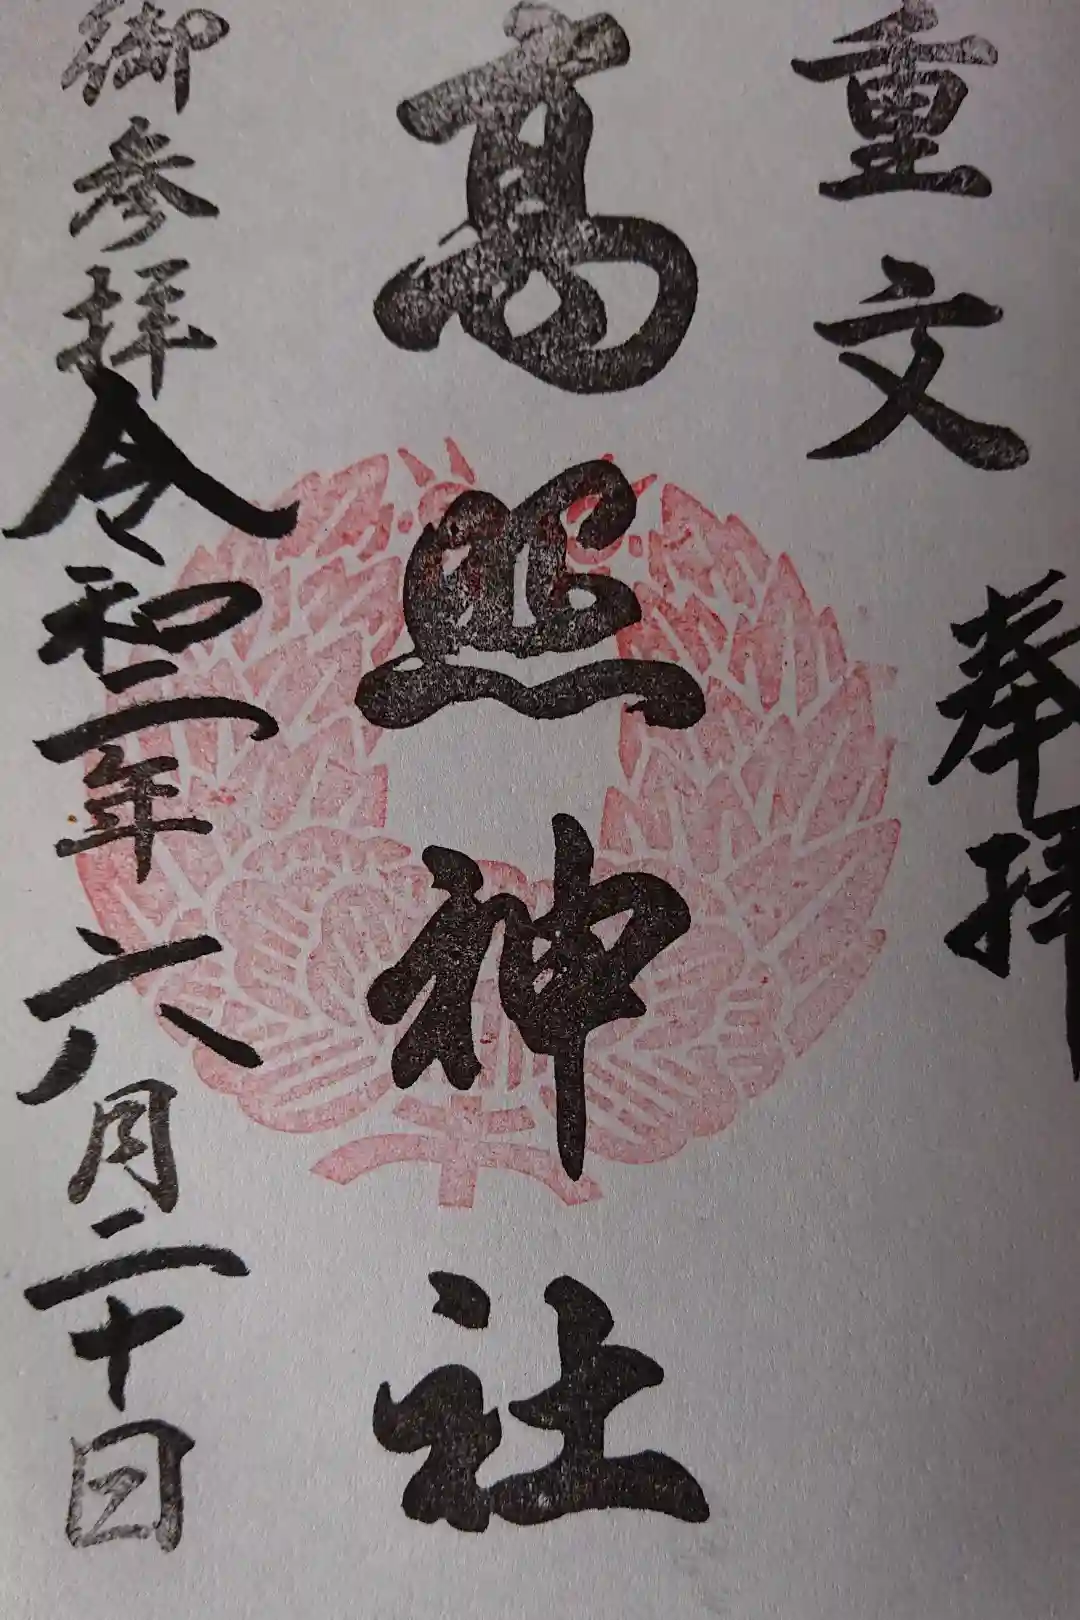 奉拝
重文
高照神社
御参拝令和二年六月二十日